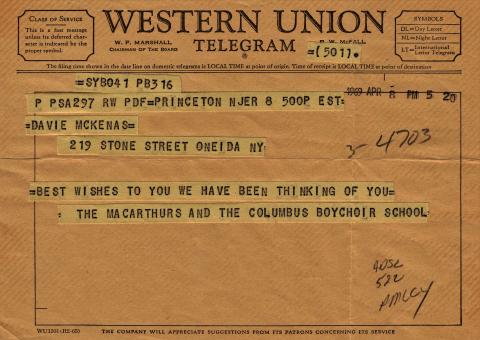 CLASS OF SERVICE
This is a fast message
unless its deferred char-
acter is indicated by the
proper symbol.
WESTERN UNION
TELEGRAM
W. P. MARSHALL
CHAIRMAN OF THE BOARD
R. W. McFALL
=(501).
SYMBOLS
DL=Day Letter
NL=Night Letter
LT=International Letter Telegram
The filing time shown in the date line on domestic telegrams is LOCAL TIME at point of origin. Time of receipt is LOCAL TIME at point of destination
=SYB041 PB316
1969 APR 8 PM 5 20
P PSA297 RW PDF=PRINCETON NJER 8 500P EST=
=DAVIE MCKENAS=
219 STONE STREET ONEIDA NY=
4703
=BEST WISHES TO YOU WE HAVE BEEN THINKING OF YOU=
THE MACARTHURS AND THE COLUMBUS BOYCHOIR SCHOOL
522
WU1201 (R2-65)
THE COMPANY WILL APPRECIATE SUGGESTIONS FROM ITS PATRONS CONCERNING ITS SERVICE